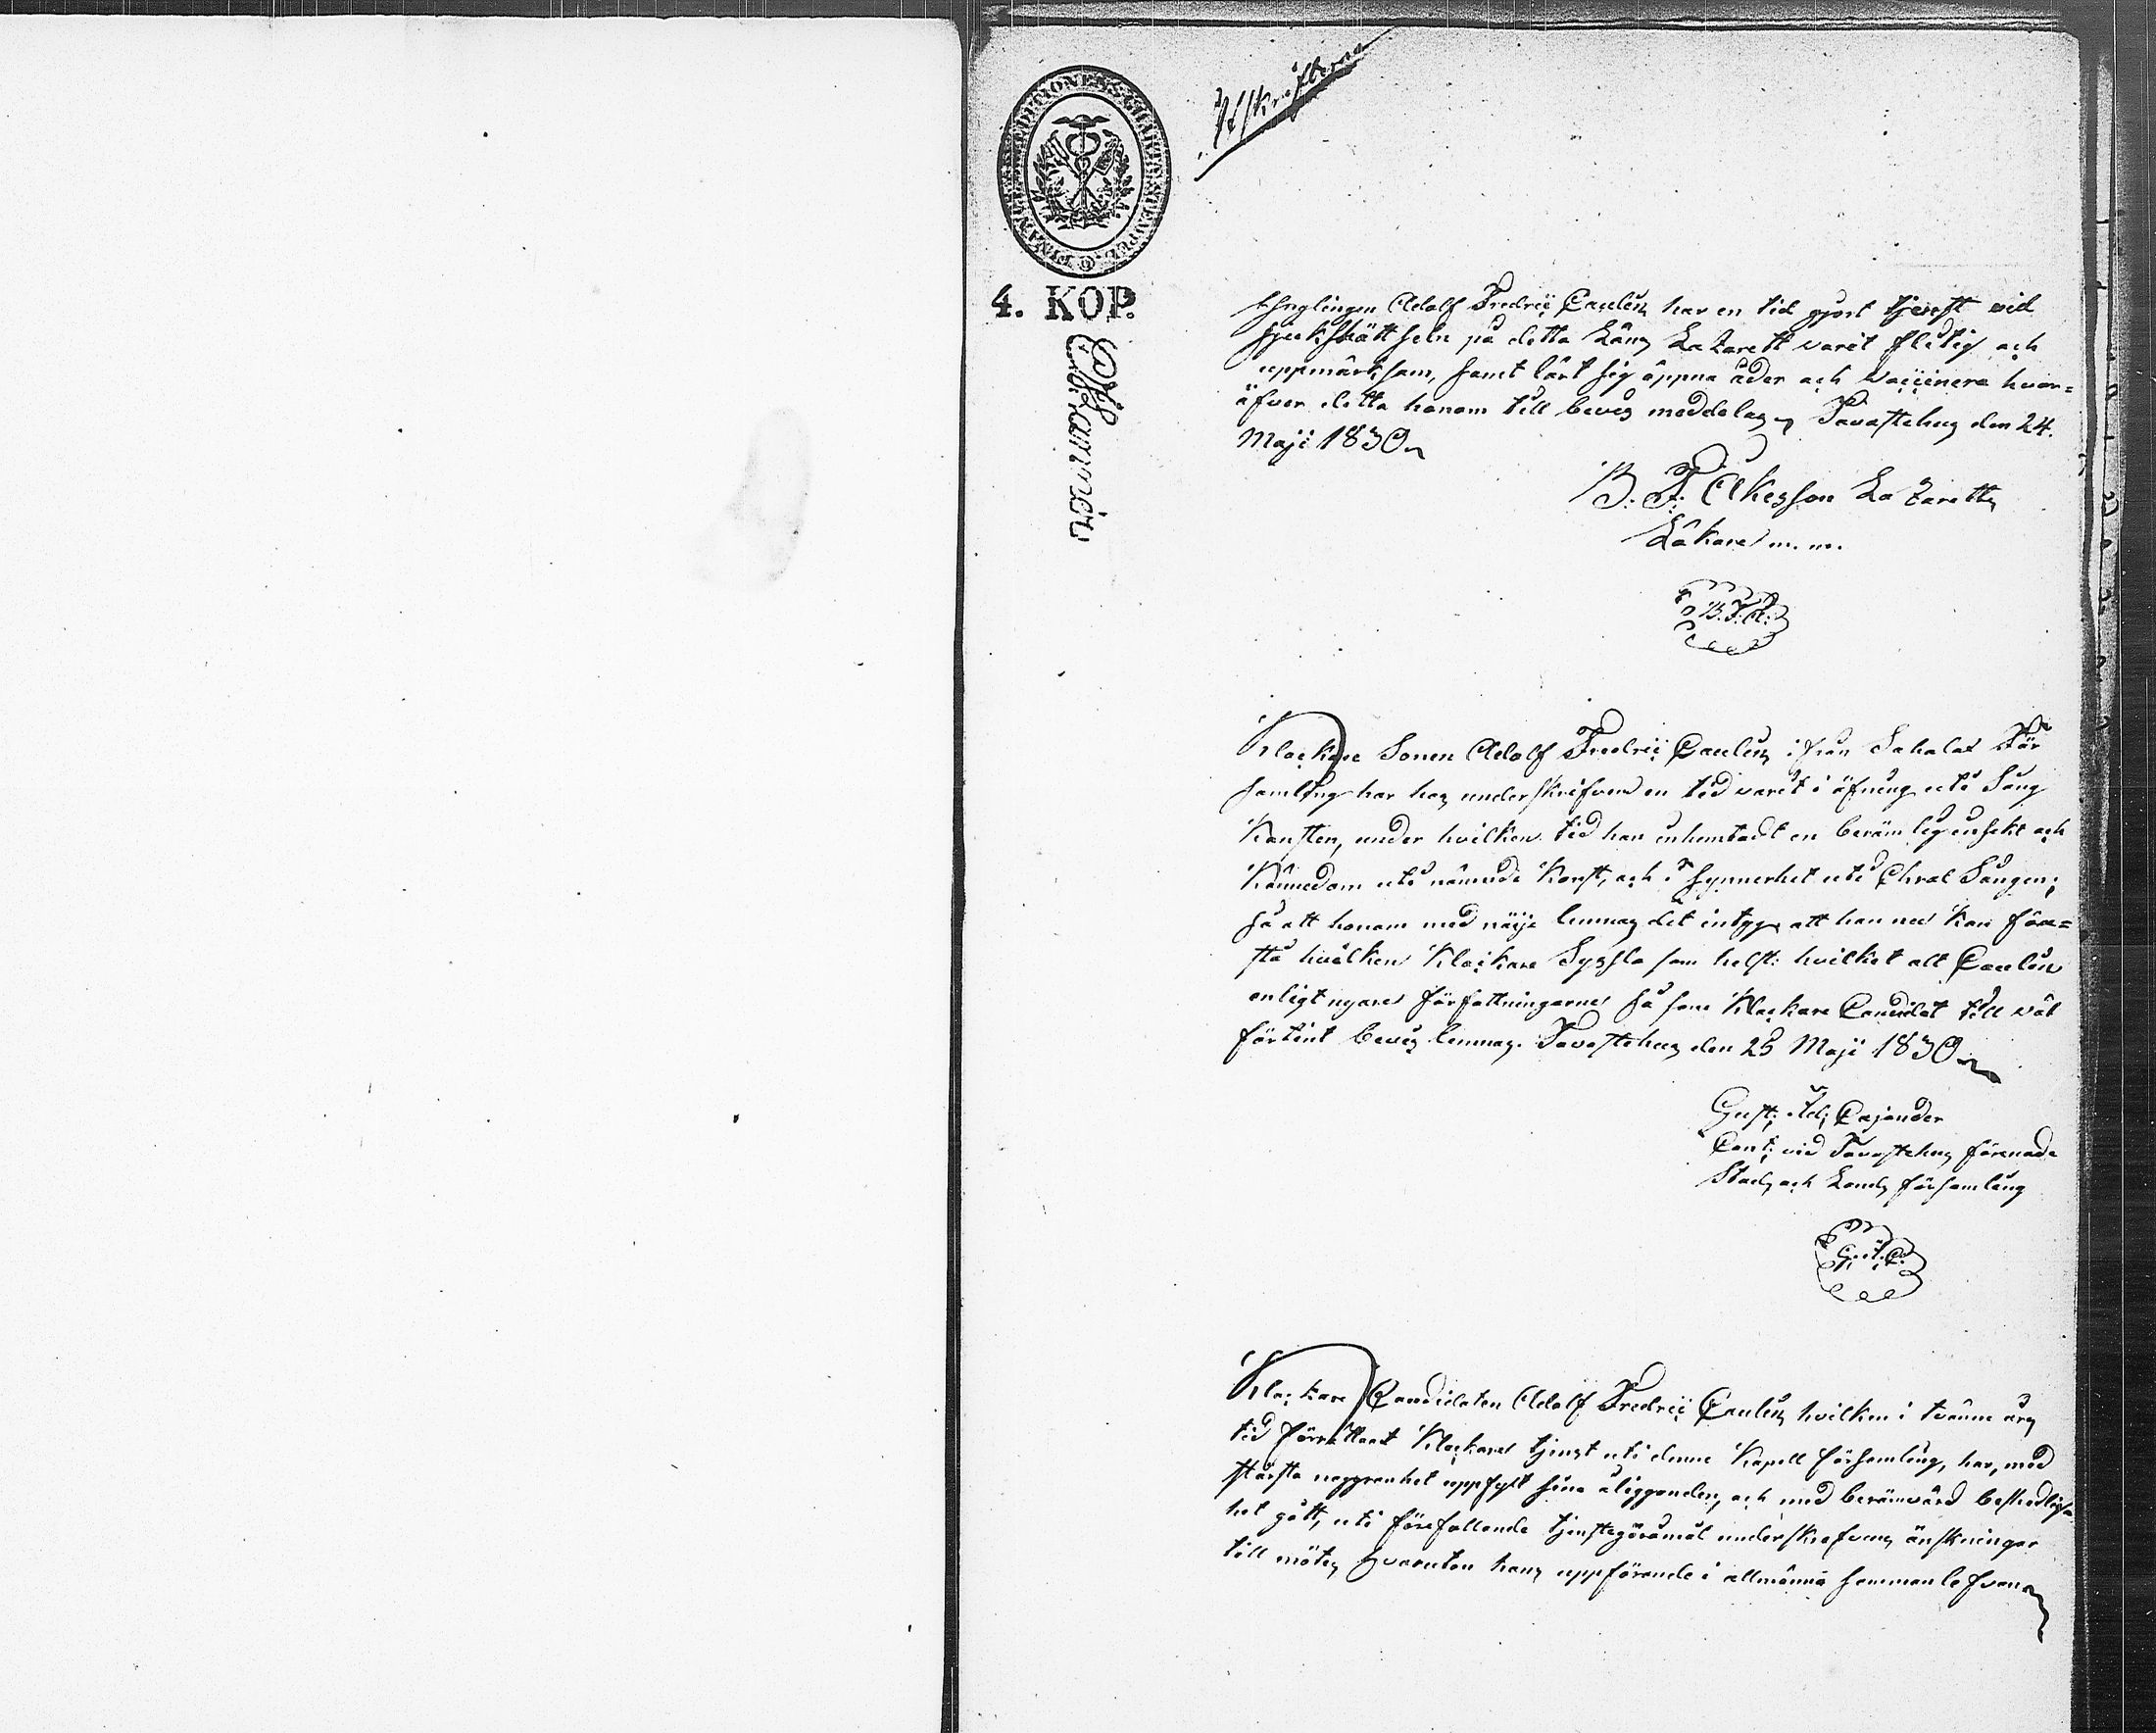 Afskrifter
FINANCE EXPEDITIONENS CHARTÆ STEMPEL
4. KOP.
Ynglingen Adolf Fredric Caulin har en tid gjort tjenst vid
sjuk skött seln på detta Läns Lazarett varit flitig och
uppmärksam, samt lärt sig öppna åder och vaccinera hvar=
öfver detta honom till bevis meddelas Tavastehus den 24.
Maji 1830
B. F. Åkesson Lazaretts
Läkare m. m.
B. F. Å:
Klockare Sonen Adolf Fredric Caulin ifrån Sahalax För
samling har hos underskrifven en tid varit i öfning uti Sång
Konsten, under hvilken tid han inhemtadt en berömlig insikt och
Kännedom uti nämnde Konst, och i synnerhet uti Chral Sången;
så att honom med nöije lemnas det intyg, att han nu kan före=
stå hvilken Klockare Syssla som helst: hvilket allt Caulin
enligt nyare författningarne så som Klockare Candidat till väl
förtint bevis lemnas. Tavastehus den 25 Maji 1830
Gust: Ad: Cajander
Cant: vid Tavastehus förenade
Stads och Lands församling
G. A. C.
Klockare Candidaten Adolf Fredric Caulin hvilken i tvänne års
tid förrättat Klockare tjenst uti denne Kapell församling, har, med
största noggranhet uppfylt sina åligganden, och med berömvärd beskedlig
het gått, uti förefallande tjenstegöromål underskrefvens önskningar
till mötes hvarutom hans uppförande i allmänna sammanlefvnan